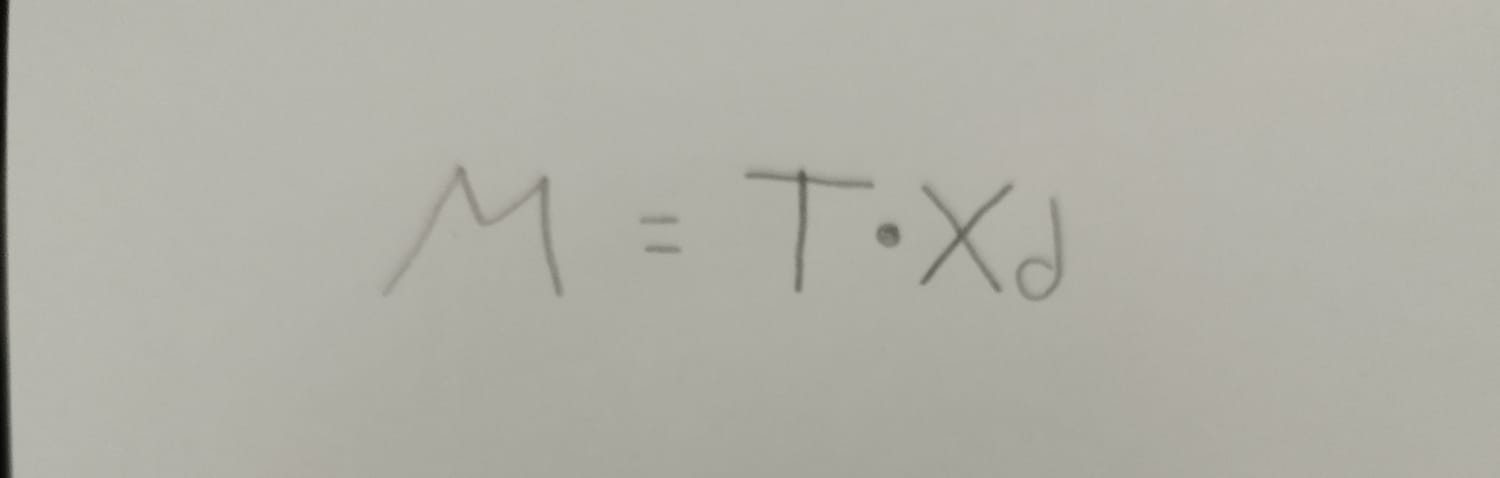 M = T · Xd